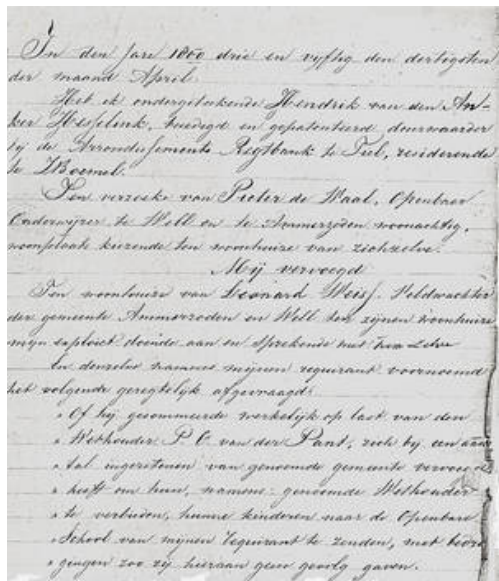 In den Jare 1800 drie en vyftig den dertigsten
der maand April.
Heb ik ondergeteekende Hendrik van den An-
ker Hesselink, beëedigd en gepatenteerd deurwaarder
bij de Arrondissements Regtbank te Tiel, resideerende
te Zalt Boemel.
Ten verzoeke van Pieter de Waal, Openbaar
Onderwijzer te Well en te Ammerzoden woonachtig,
woonplaats kiezende ten woonhuize van zichzelve.
Mij vervoegd
Ten woonhuize van Leonard Weiss. Veldwachter
der gemeente Ammerzoden en Well ten zijnen woonhuize
mijn exploict doende aan en sprekende met
En denzelve namens mijnen requirant voornoemd
het volgende geregtelijk afgevraagd:
" Of hij gesommeerde werkelijk op last van den
" Wethouder P. C. van der Pant, zich bij een aan-
" tal ingezetenen van genoemde gemeente vervoegd
" heeft om hun, namens genoemde Wethouder
" te verbieden, hunne kinderen naar de Openbare
" School van mijnen requirant te zenden, met bedrei-
" gingen zoo zij hieraan geen gevolg gaven.